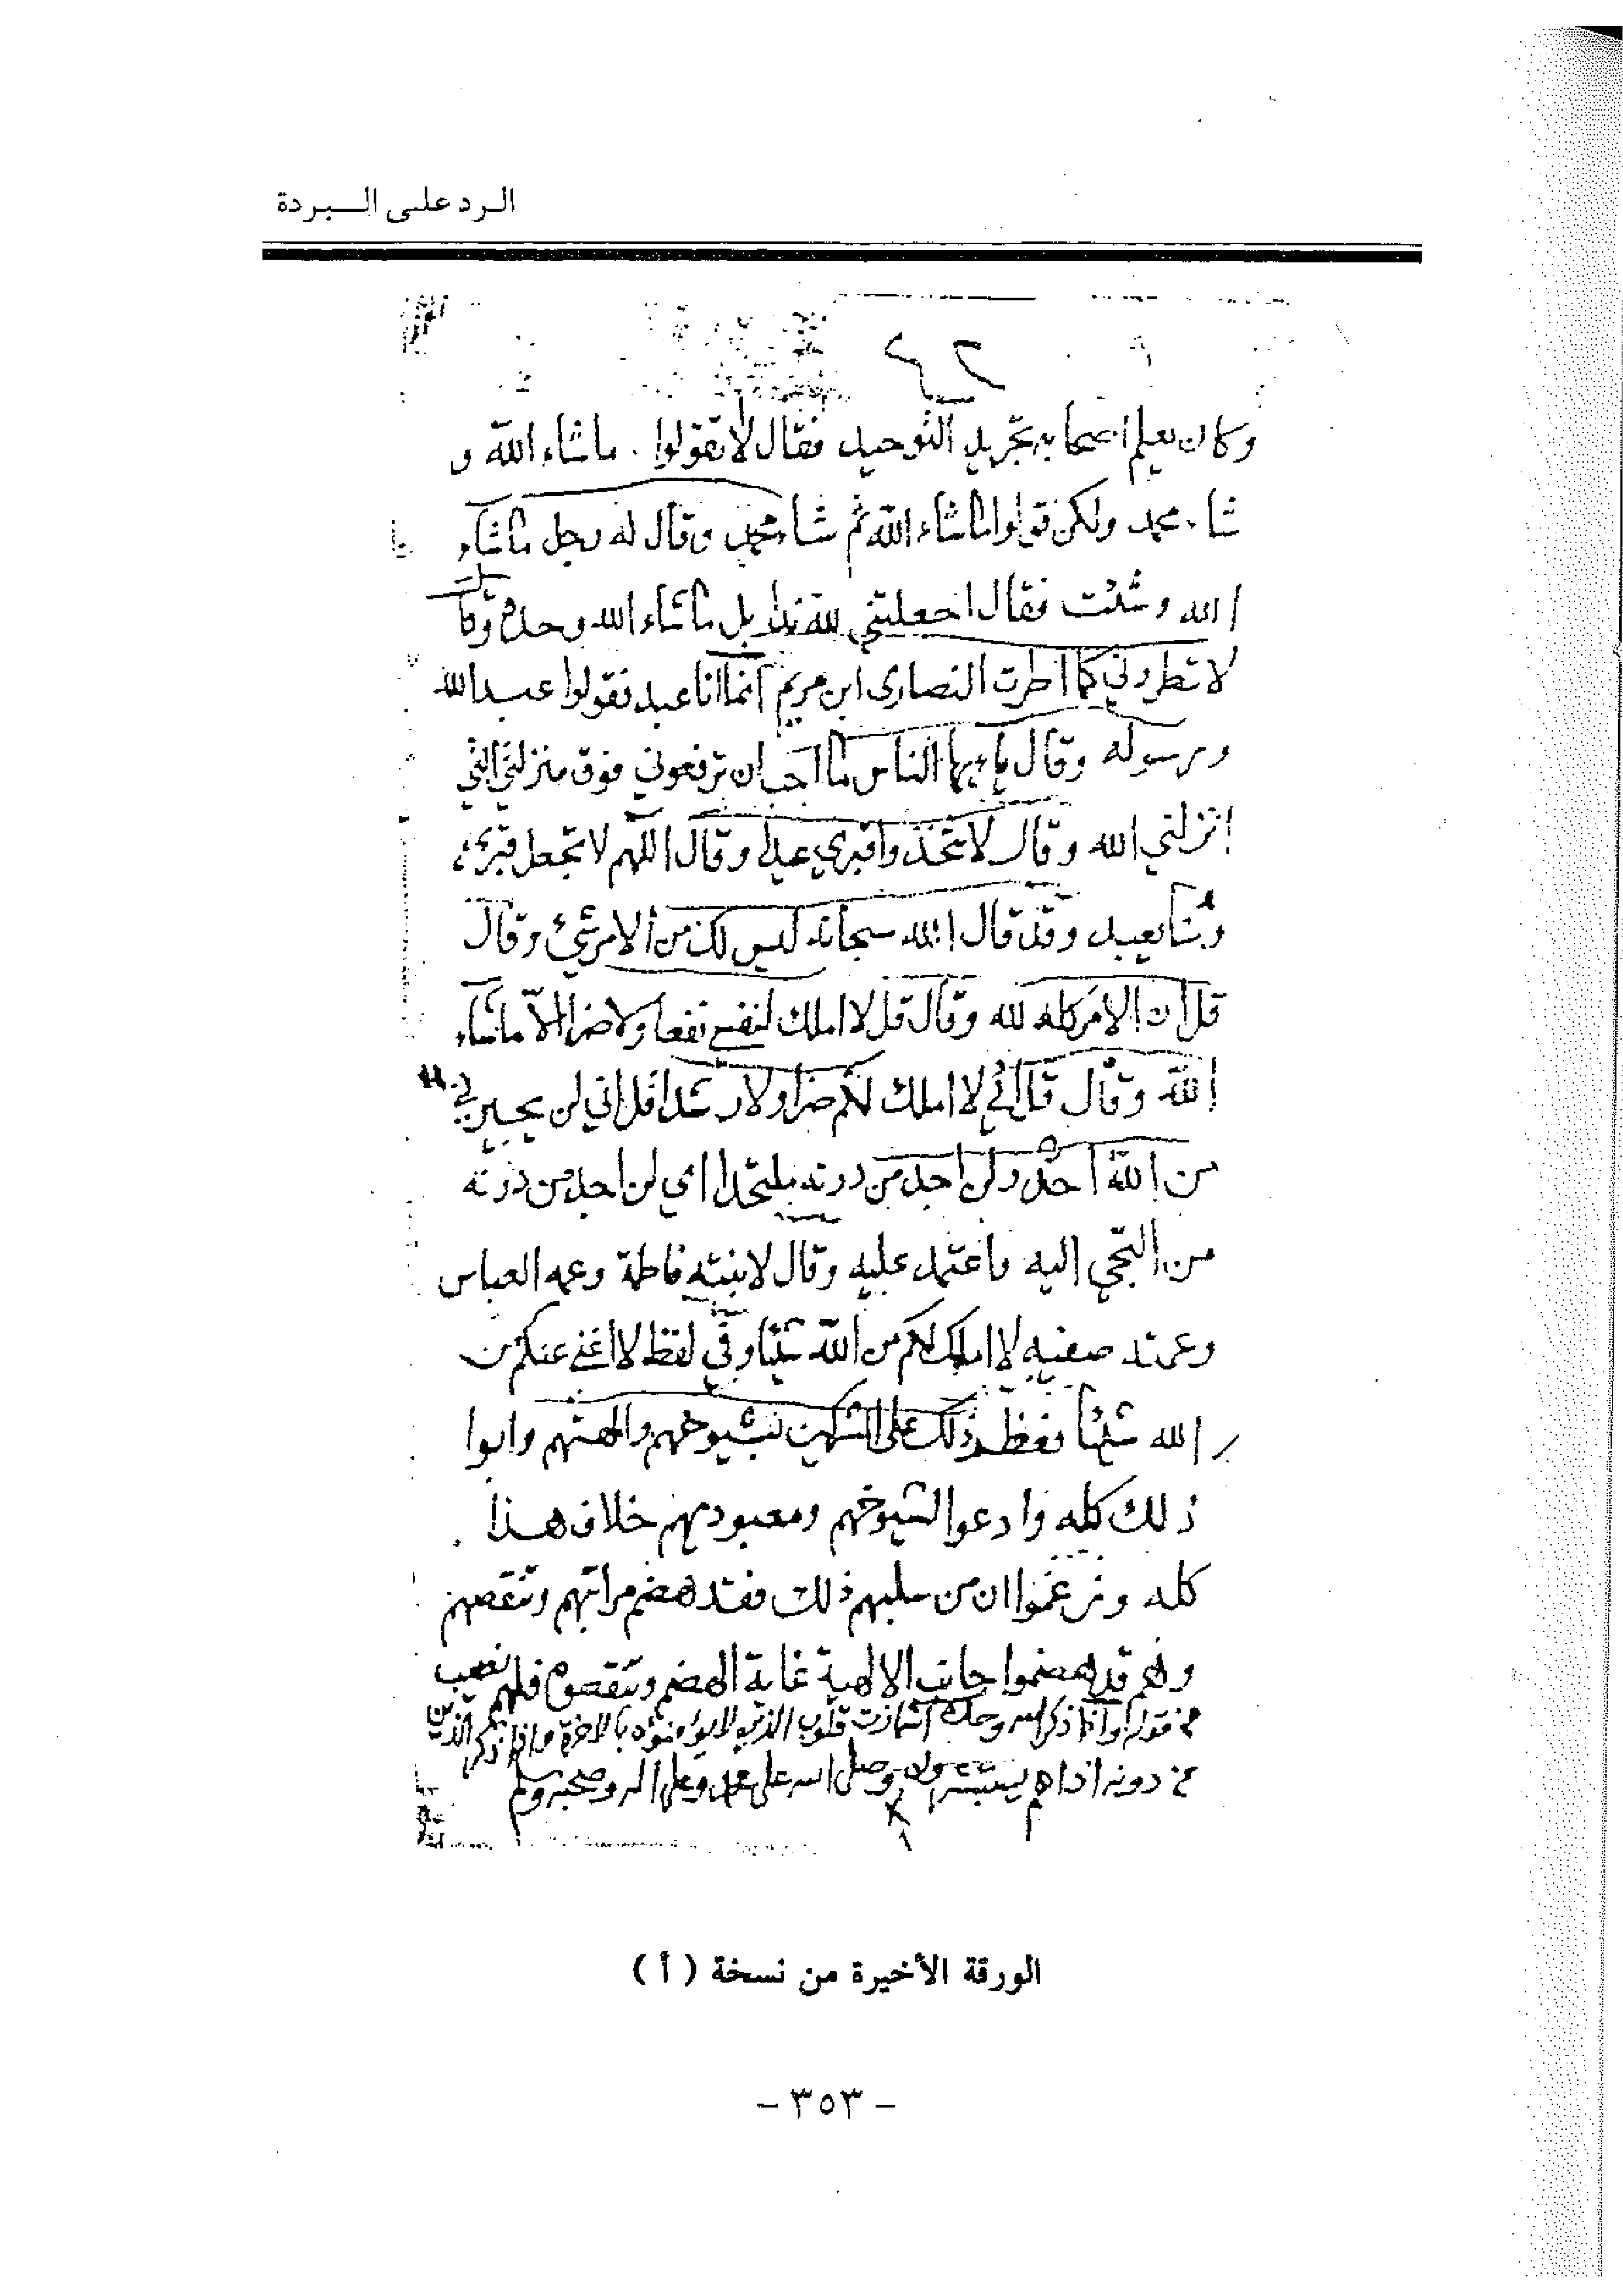 الرد على البردة
وكان يعلم اصحابه تجريد التوحيد فقال لا تقولوا . ماشاء الله و
شاء محمد ولكن قولوا ماشاء الله ثم شاء محمد وقال له رجل ماشاء
الله وشئت فقال اجعلتني لله ندا بل ماشاء الله وحده وقال
لا تطروني كما اطرت النصارى ابن مريم انما انا عبد فقولوا عبد الله
ورسوله وقال يا ايها الناس ما احب ان ترفعوني فوق منزلتي التي
انزلني الله وقال لا تتخذوا قبري عيدا وقال اللهم لا تجعل قبري
وثنا يعبد وقد قال الله سبحانه ليس لك من الامر شيئ وقال
قل ان الامر كله لله وقال قل لا املك لنفسي نفعا ولا ضرا الا ماشاء
الله وقال قل اني لا املك لكم ضرا ولا رشدا قل اني لن يجيرني
من الله احد ولن اجد من دونه ملتحدا اي لن اجد من دونه
من التجي اليه واعتمد عليه وقال لابنته فاطمة وعمه العباس
وعمته صفيه لا املك لكم من الله شيئا وفي لفظ لا اغني عنكم من
الله شيئا فعظم ذلك على المشركين بشيوخهم والهتهم وابوا
ذلك كله وادعوا لشيوخهم ومعبوديهم خلاف هذا .
كله وزعموا ان من سلبهم ذلك فقد هضم مراتبهم وتنقصهم
وهم قد هضموا جانب الالهية غاية الهضم وتنقصوه فلهم نصيب
من قوله واذا ذكر الله وحده اشمازت قلوب الذين لا يؤمنون بالاخرة واذا ذكر الذين
من دونه اذا هم يستبشرون وصلى الله على محمد وعلى اله وصحبه وسلم
الورقة الأخيرة من نسخة ( أ )
- ٣٥٣ -